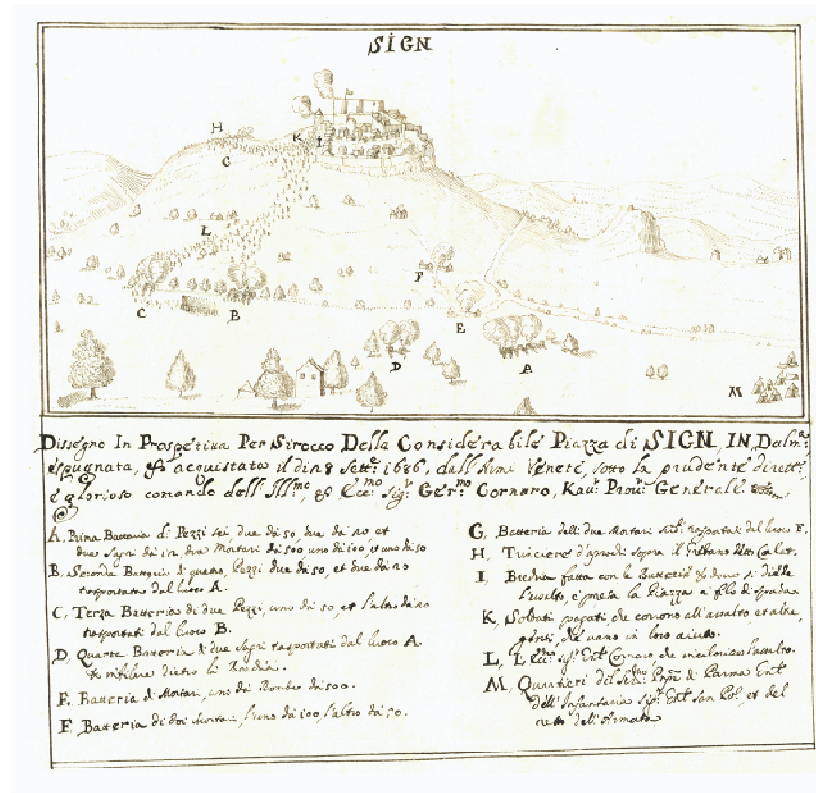 SIGN
H
G
K
I
L
F
C
B
E
D
A
M
Dissegno In Prospetiva Per Sirocco Della Considerabile Piazza di SIGN, IN Dalm.ª
espugnata, et acquistata il di 28 sett.e 1686, dall'Armi Venete, sotto la prudente dirett.e
è glorioso comando dell'Ill.mo, & Ecc.mo Sig.r Ger.mo Cornaro, Kau.r Prou.r Generall
A, Prima Battaria di Pezzi sei, due da 50, due da 20 et
due Sagri da 12, due Mortari da 500 uno di 100, et uno da 50
B, Seconda Batteria di quatro Pezzi due da 50, et due da 20
trasportata dal luoco A.
C, Terza Batteria di due Pezzi, uno da 50, et l'altro da 20
trasportati dal luoco B.
D, Quarta Batteria di due Sagri trasportati dal luoco A
infilar dietro la
E, Batteria di Mortari, uno da Bombe da 500.
F, Batteria di doi Mortari, l'uno da 100, l'altro da 50.
G, Batteria delli due Mortari trasportati dal luoco F.
H, Trinciere sopra il detto
I, Brechia fatta con le Batterie & dove si diede
l'assalto, e presa la Piazza a filo di spada
K, Soldati pagati che corrono all'assalto, et altre
genti, che vanno in loro aiuto.
L, L'Ecc.mo Sig.r Cornaro che l'assalto.
M, Quartieri del Ser.mo Prpe di Parma
dell'Infantaria Sig.r San Pol, et del
resto dell'Armata